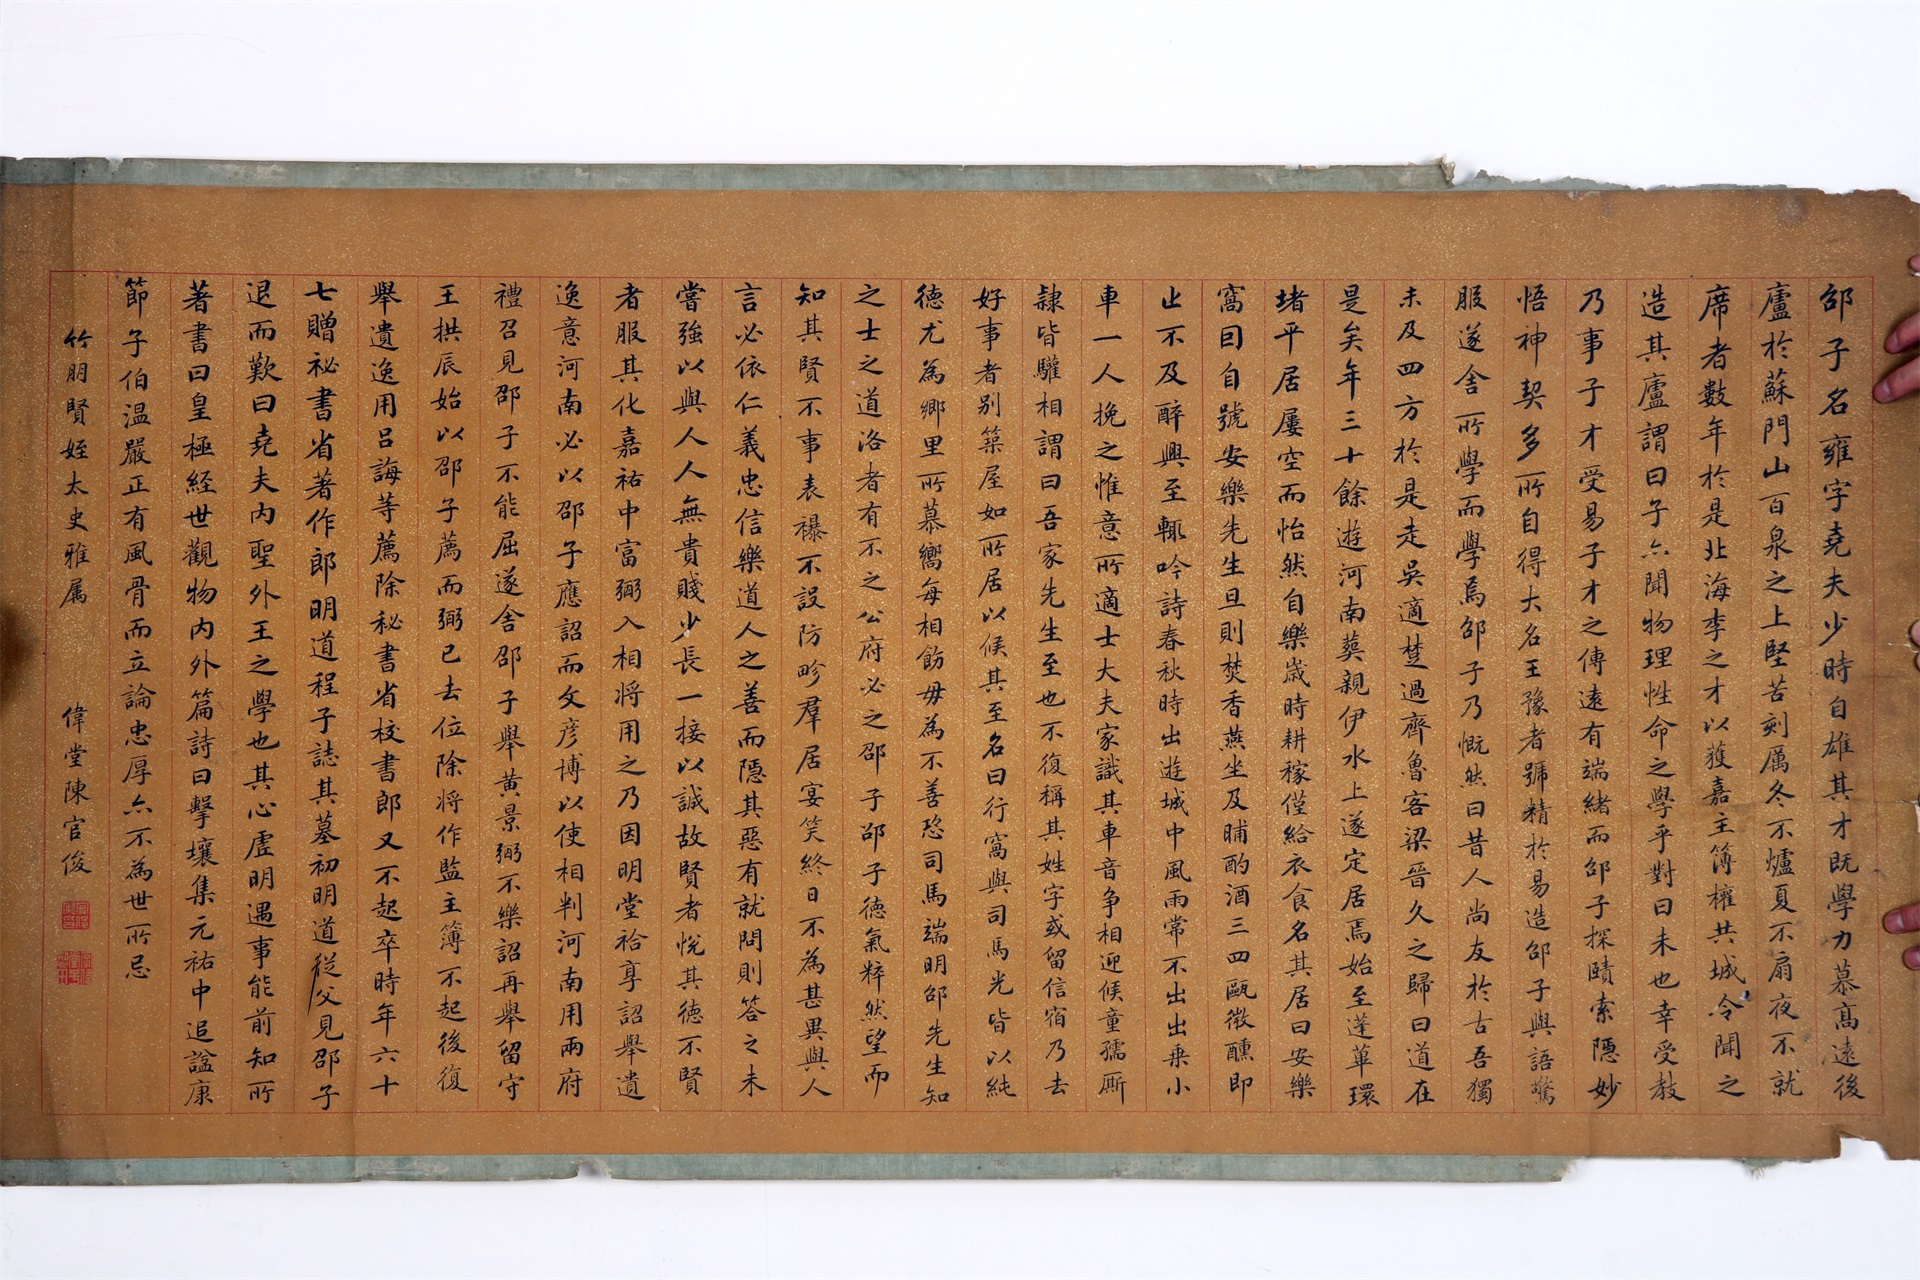 邵子名雍字堯夫少時自雄其才既學力慕高遠後
廬於蘇門山百泉之上堅苦刻厲冬不爐夏不扇夜不就
席者數年於是北海李之才以獲嘉主簿權共城令聞之
造其廬謂曰子亦聞物理性命之學乎對曰未也幸受教
乃事子才受易子才之傳遠有端緒而邵子探賾索隱妙
悟神契多所自得大名王豫者號精於易造邵子與語驚
服遂舍所學而學焉邵子乃慨然曰昔人尚友於古吾獨
未及四方於是走吳適楚過齊魯客梁晉久之歸曰道在
是矣年三十餘遊河南葬親伊水上遂定居焉始至蓬蓽環
堵平居屢空而怡然自樂歲時耕稼僅給衣食名其居曰安樂
窩因自號安樂先生旦則焚香燕坐及晡酌酒三四甌微醺即
止不及醉興至輒吟詩春秋時出遊城中風雨常不出出乗小
車一人挽之惟意所適士大夫家識其車音争相迎候童孺厮
隸皆驩相謂曰吾家先生至也不復稱其姓字或留信宿乃去
好事者别築屋如所居以候其至名曰行窩與司馬光皆以純
德尤為鄉里所慕嚮每相飭毋為不善恐司馬端明邵先生知
之士之道洛者有不之公府必之邵子邵子德氣粹然望而
知其賢不事表襮不設防畛羣居宴笑終日不為甚異與人
言必依仁義忠信樂道人之善而隱其惡有就問則答之未
嘗強以與人人無貴賤少長一接以誠故賢者悅其德不賢
者服其化嘉祐中富弼入相将用之乃因明堂祫享詔舉遺
逸意河南必以邵子應詔而文彥博以使相判河南用兩府
禮召見邵子不能屈遂舍邵子舉黄景弼不樂詔再舉留守
王拱辰始以邵子薦而弼已去位除将作監主簿不起後復
舉遺逸用呂誨等薦除秘書省校書郎又不起卒時年六十
七贈祕書省著作郎明道程子誌其墓初明道従父見邵子
退而歎曰堯夫内聖外王之學也其心虛明遇事能前知所
著書曰皇極經世觀物内外篇詩曰擊壤集元祐中追謚康
節子伯温嚴正有風骨而立論忠厚亦不為世所忌
竹朋賢姪太史雅属 偉堂陳官俊